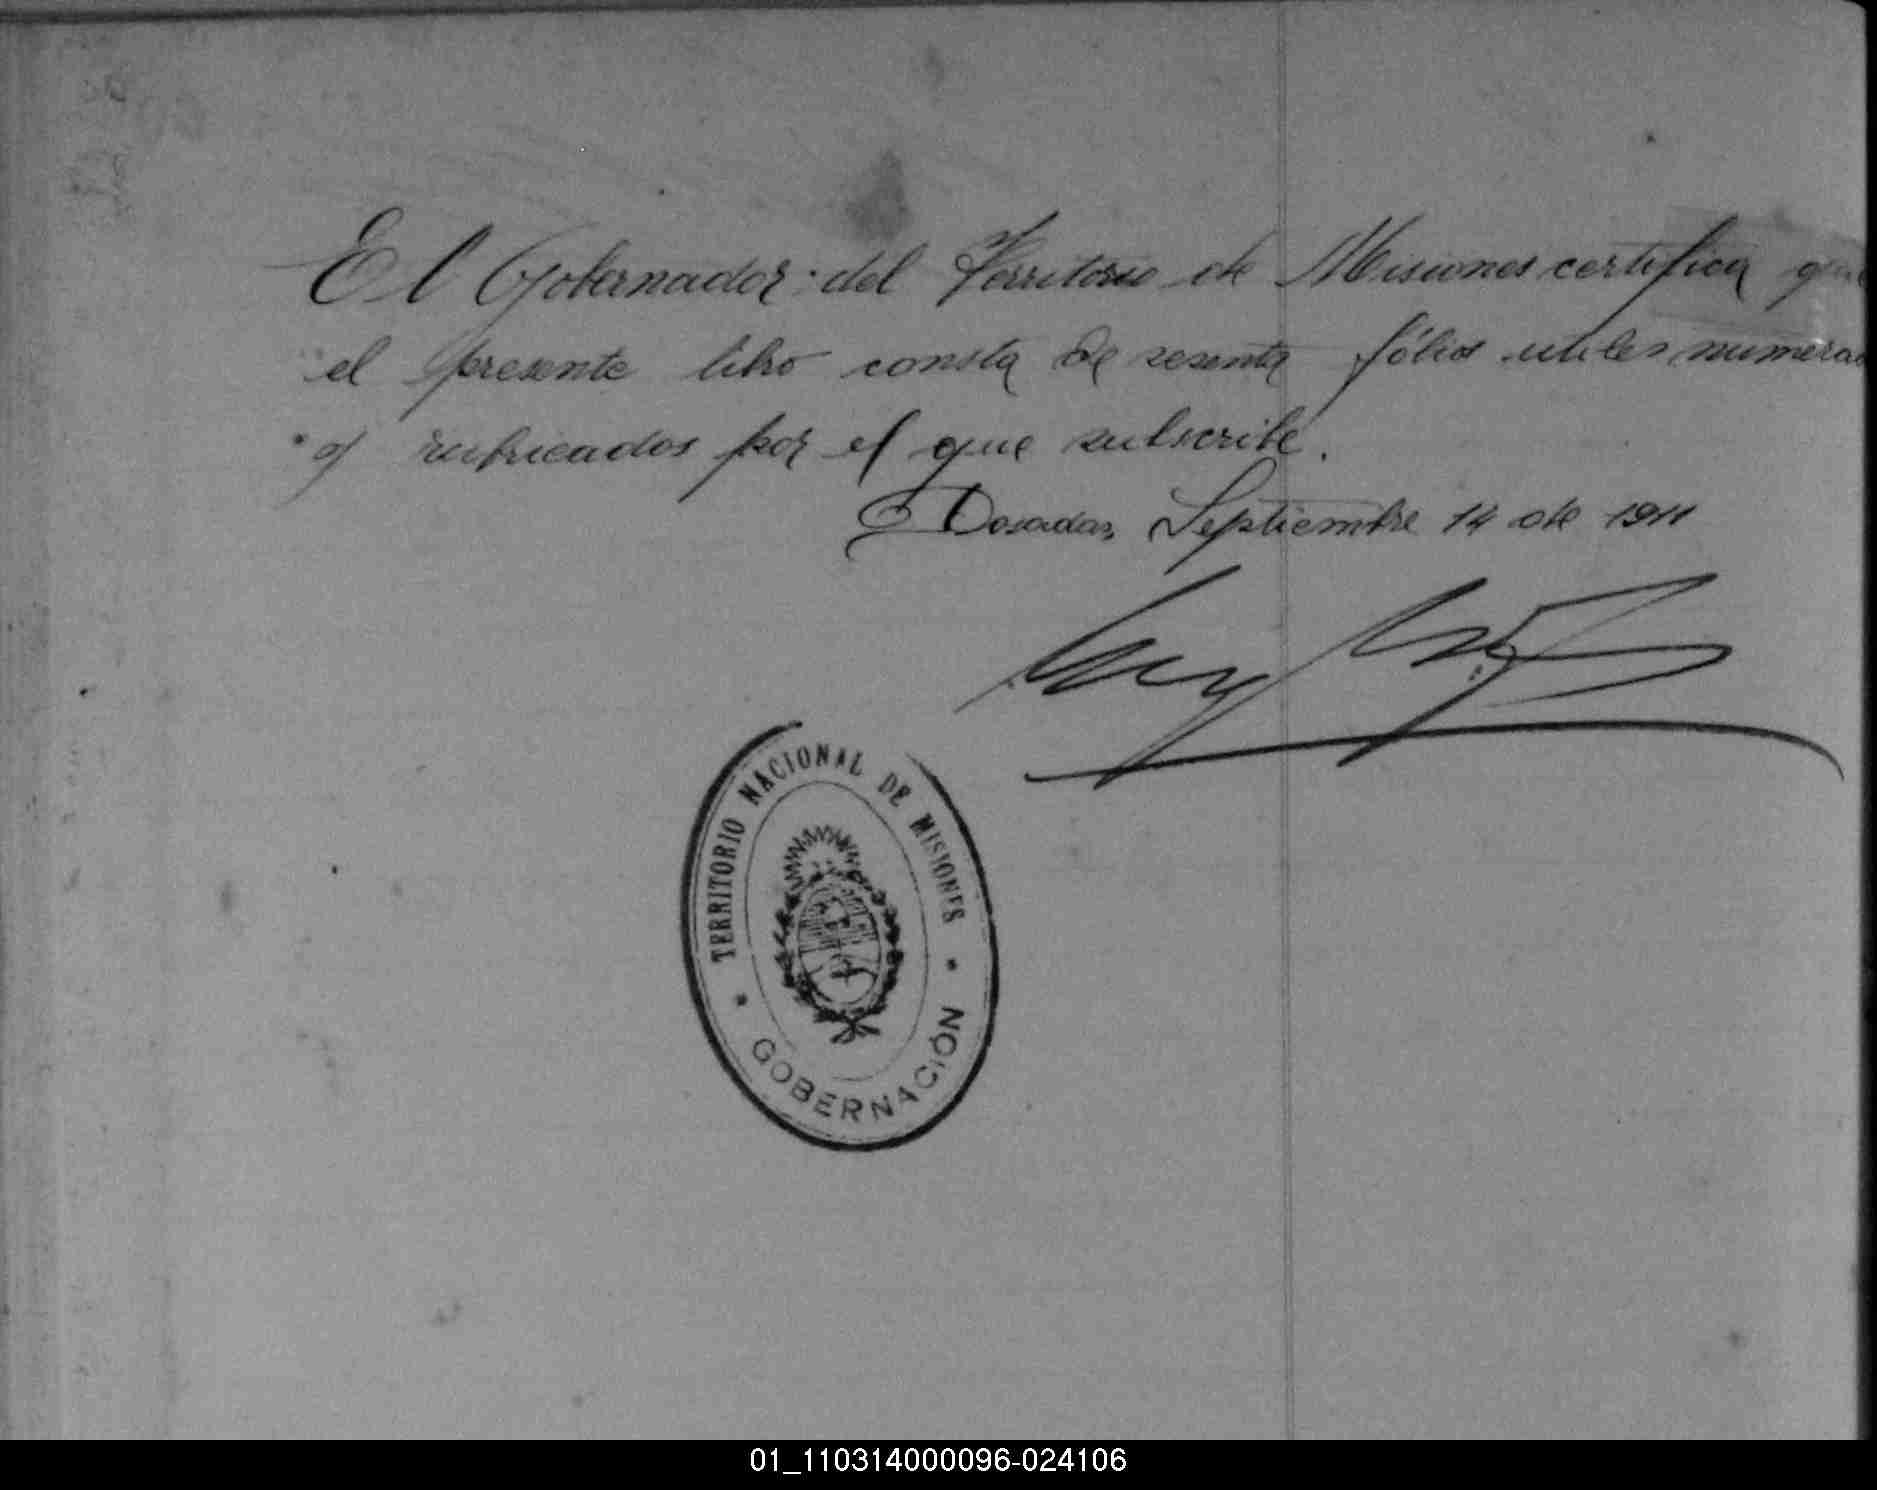 El Gobernador del Territorio de Misiones certifica que
el presente libro consta de sesenta fólios utiles numera
y rubricados por el que subscribe.
Posadas, Septiembre 14 de 1911
TERRITORIO NACIONAL DE MISIONES
GOBERNACIÓN
01_110314000096-024106